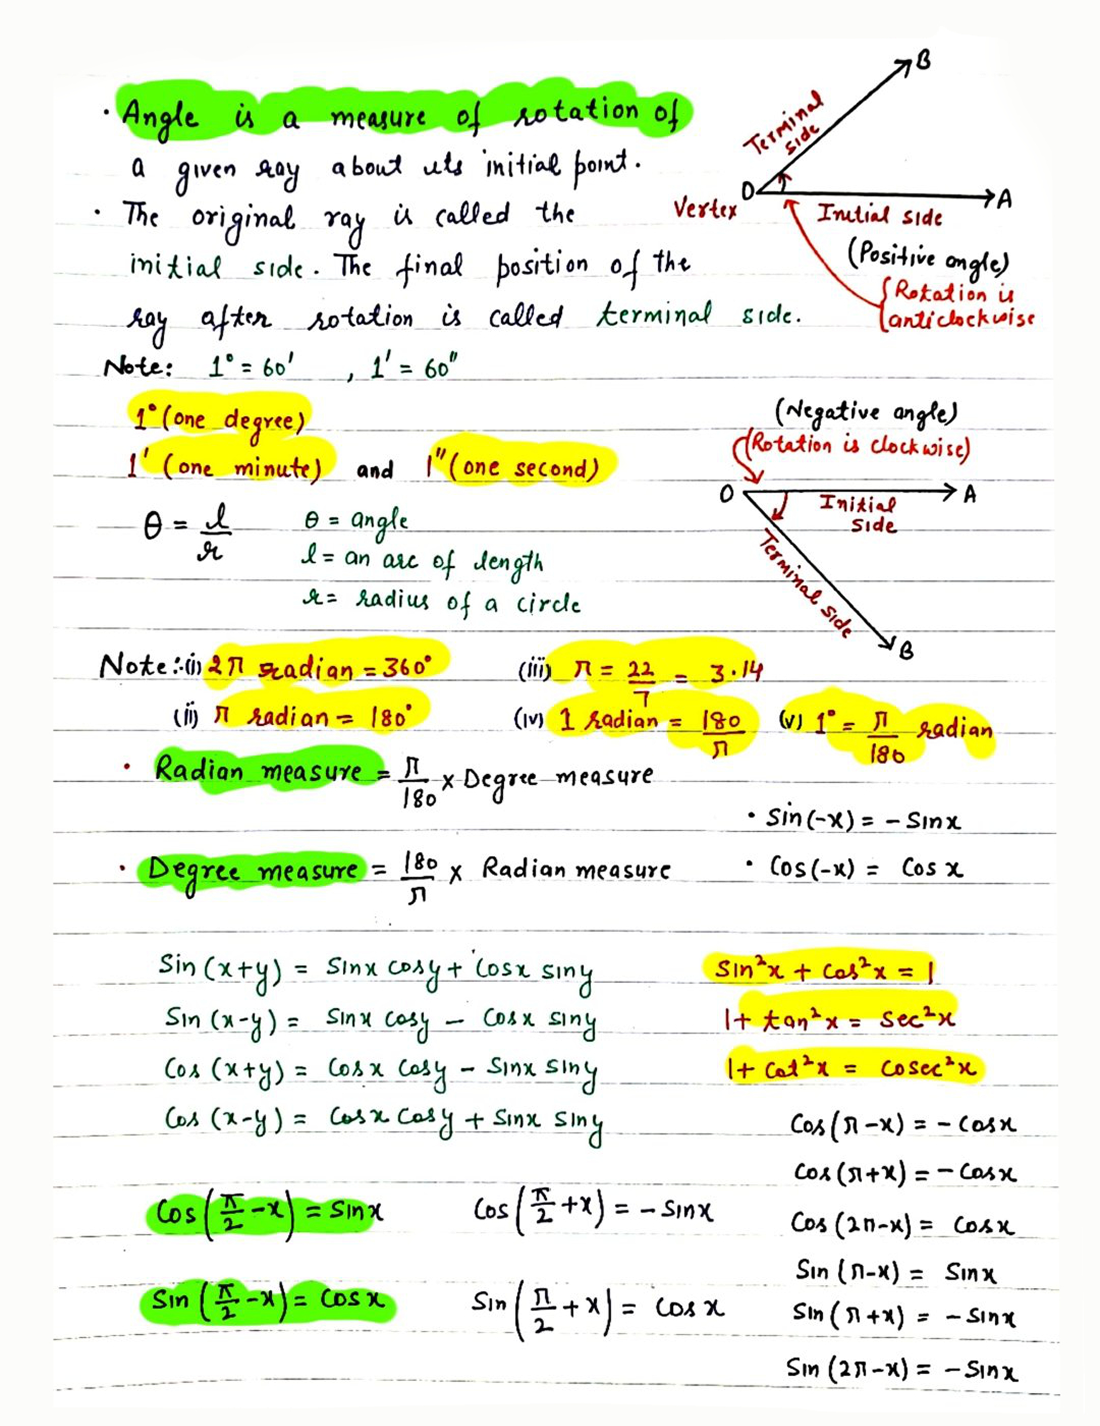 · Angle is a measure of rotation of
a given ray about its initial point.
· The original ray is called the
initial side. The final position of the
ray after rotation is called terminal side.
B
Terminal
side
O
A
Vertex
Initial side
(Positive angle)
{Rotation is
anticlockwise
Note: 1° = 60' , 1' = 60"
1° (one degree)
1' (one minute) and 1" (one second)
(Negative angle)
(Rotation is clockwise)
O
A
Initial
side
Terminal side
B
θ = l/r
θ = angle
l = an arc of length
r = radius of a circle
Note:·(i) 2π radian = 360°
(iii) π = 22/7 = 3.14
(ii) π radian = 180°
(iv) 1 radian = 180/π
(v) 1° = π/180 radian
· Radian measure = π/180 × Degree measure
· Sin(-x) = - Sinx
· Degree measure = 180/π × Radian measure
· Cos(-x) = Cos x
Sin (x+y) = Sinx cosy + Cosx siny
Sin²x + Cos²x = 1
Sin (x-y) = Sinx cosy - Cosx siny
1 + tan²x = Sec²x
Cos (x+y) = Cosx Cosy - Sinx Siny
1 + Cot²x = Cosec²x
Cos (x-y) = Cosx Cosy + Sinx Siny
Cos(π-x) = - Cosx
Cos(π+x) = - Cosx
Cos(π/2 -x) = Sinx
Cos(π/2 +x) = - Sinx
Cos (2π-x) = Cosx
Sin (π-x) = Sinx
Sin (π/2 -x) = Cosx
Sin (π/2 + x) = Cos x
Sin (π+x) = - Sinx
Sin (2π-x) = - Sinx